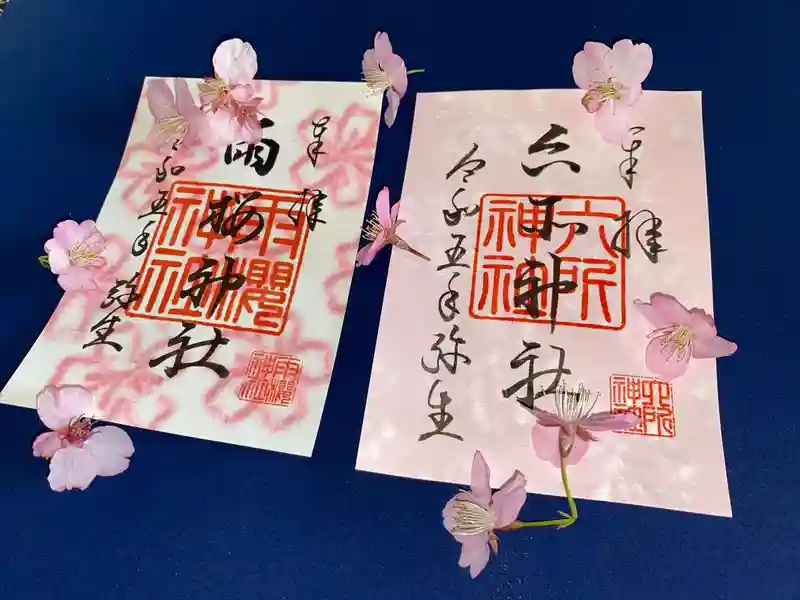 奉拝
雨桜神社
令和五年弥生
雨櫻神社
雨櫻神社
奉拝
六所神社
令和五年弥生
六所神社
六所神社